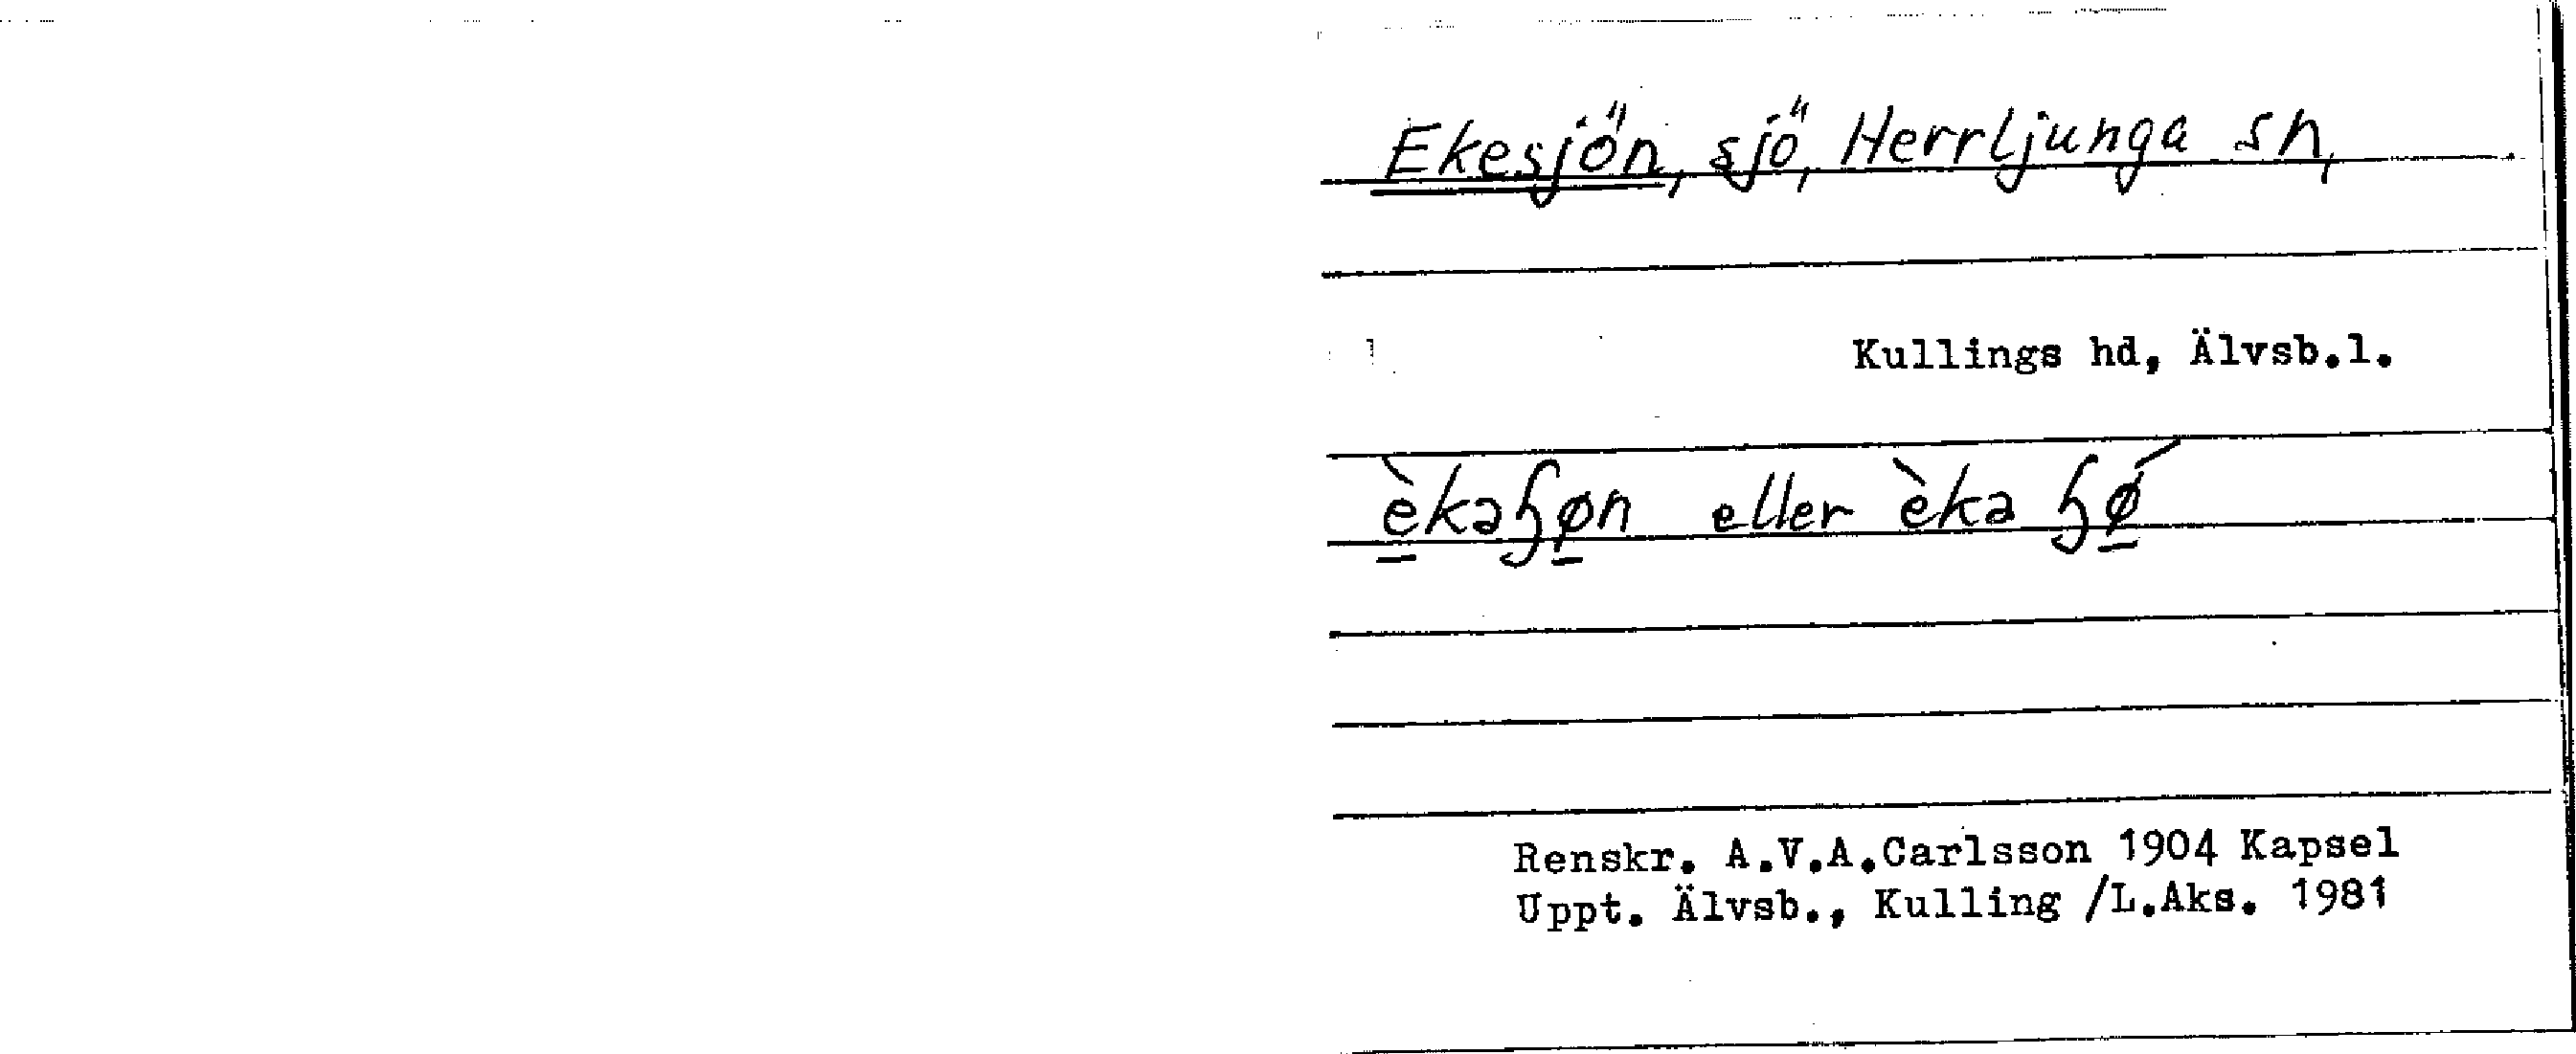 Ekesjön, sjö, Herrljunga sn,
Kullings hd, Älvsb.l.
è̱kəɧø̱n eller è̱ka ɧǿ̱
Renskr. A.V.A.Carlsson 1904 Kapsel
Uppt. Älvsb., Kulling /L.Aks. 1981